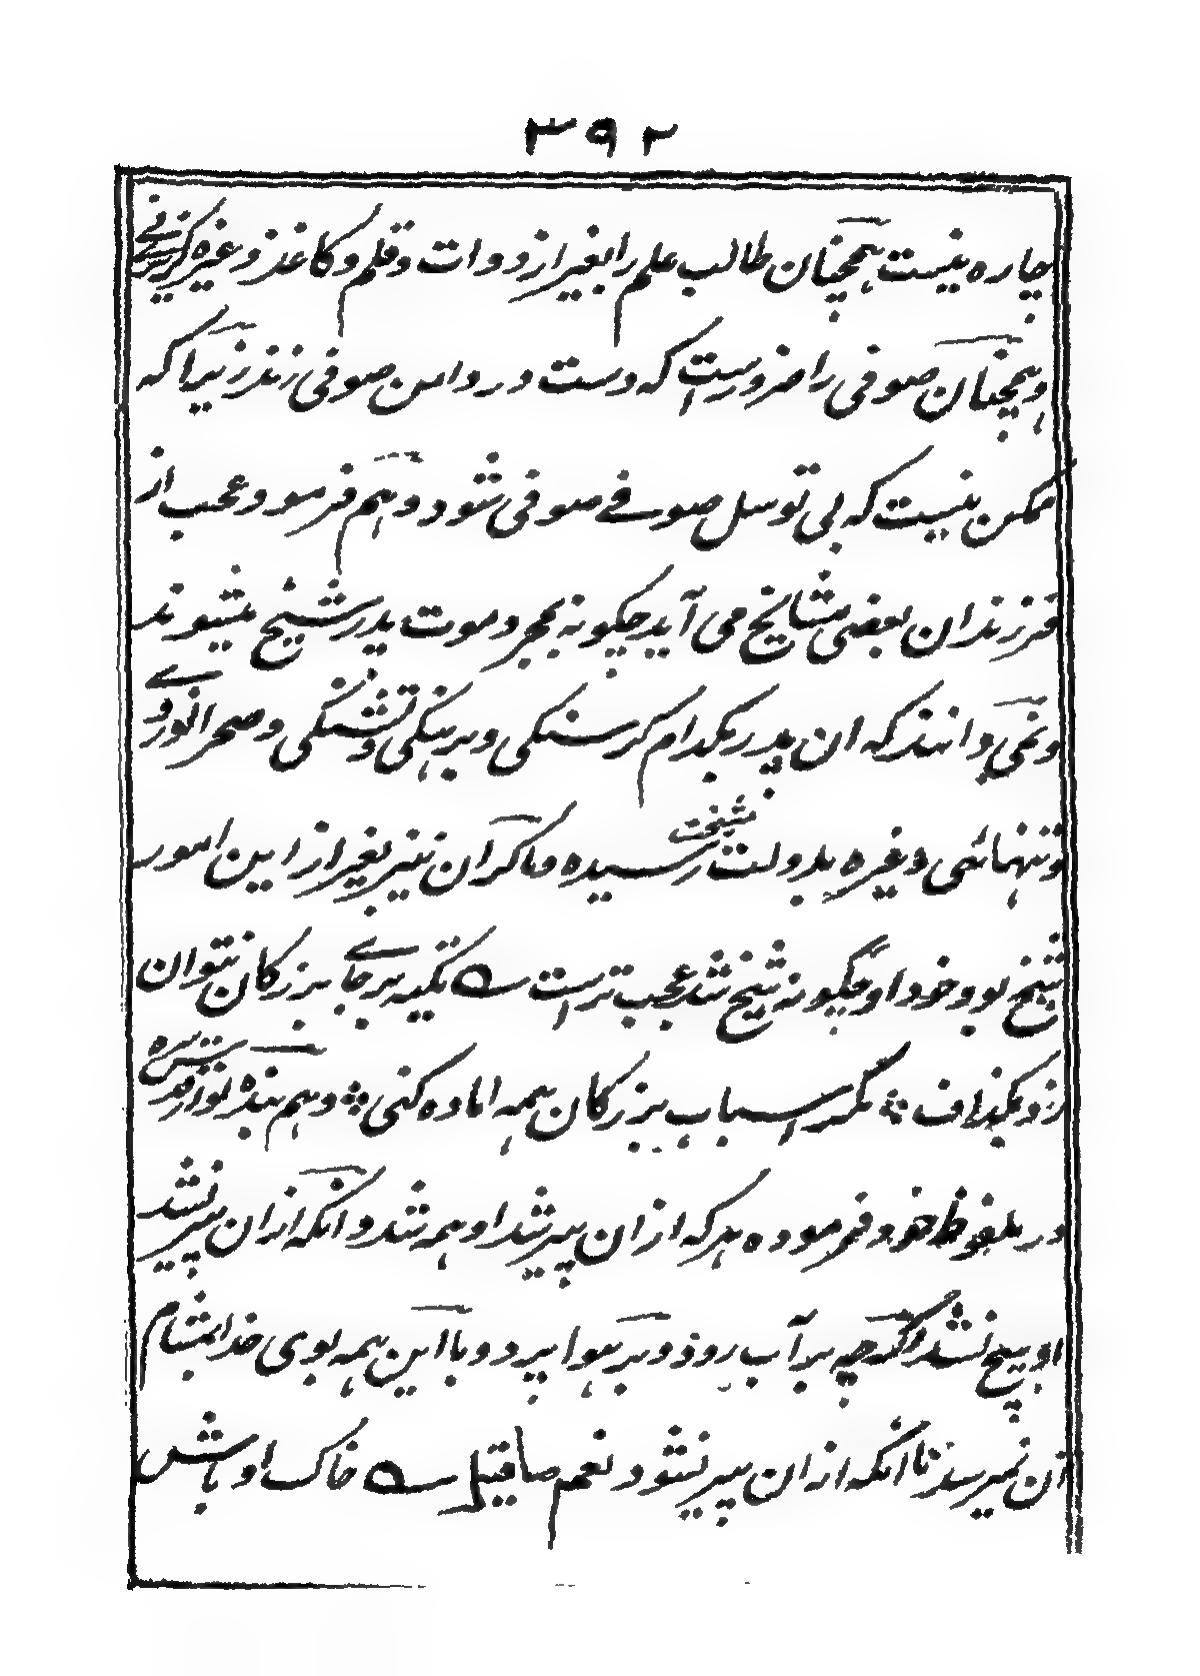 ۳۹۲
چاره نیست همچنان طالب علم را بغیر از دوات و قلم و کاغذ و غیره گریز نے
و همچنان صوفی را ضرورست که دست در دامن صوفی زند زیرا که
ممکن نیست که بی توسل صوفے صوفی شود و هم فرمود عجب از
فرزندان بعضی مشایخ می آید چگونه بمجرد موت پدر شیخ میشوند
و نمی دانند که ان پدر بکدام گرسنگی و برهنگی و تشنگی و صحرا نوردے
و تنهائی و غیره بدولت شیخت رسیده و ما گران نیز بغیر از این امور
شیخ بود خود او چگونه شیخ شد عجب تر است ؎ تکیه بر جاے بزرگان نتوان
زد بگذاف ؞ مگر اسباب بزرگان همه اماده کنی ؞ و هم بنده نواز قدس سره
در ملفوظ خود فرموده هر که از ان پیر شد او همه شد و انکه از ان پیر نشد
او هیچ نشد اگرچه بر آب رود و بر هوا پرد و با این همه بوی خدا بمشام
آن نمیرسد تا انکه از ان پیر نشود نعم ما قیل ؎ خاک او باش